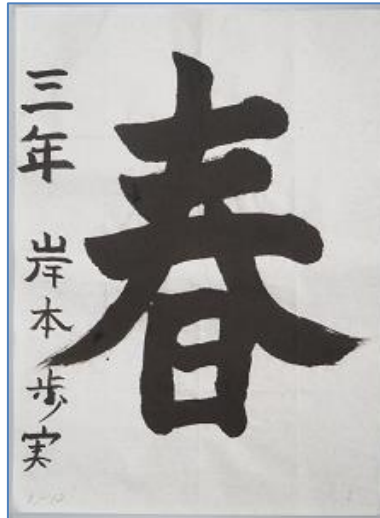 春
三年 岸本歩実